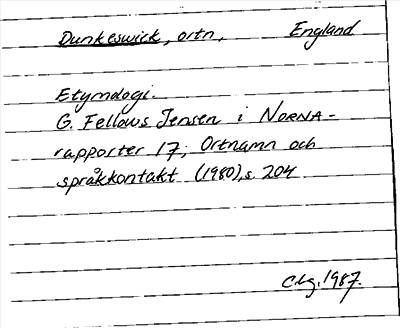 Dunkeswick, ortn, England
Etymologi.
G. Fellows Jensen i NORNA-
rapporter 17, Ortnamn och
språkkontakt (1980), s. 204
1987.